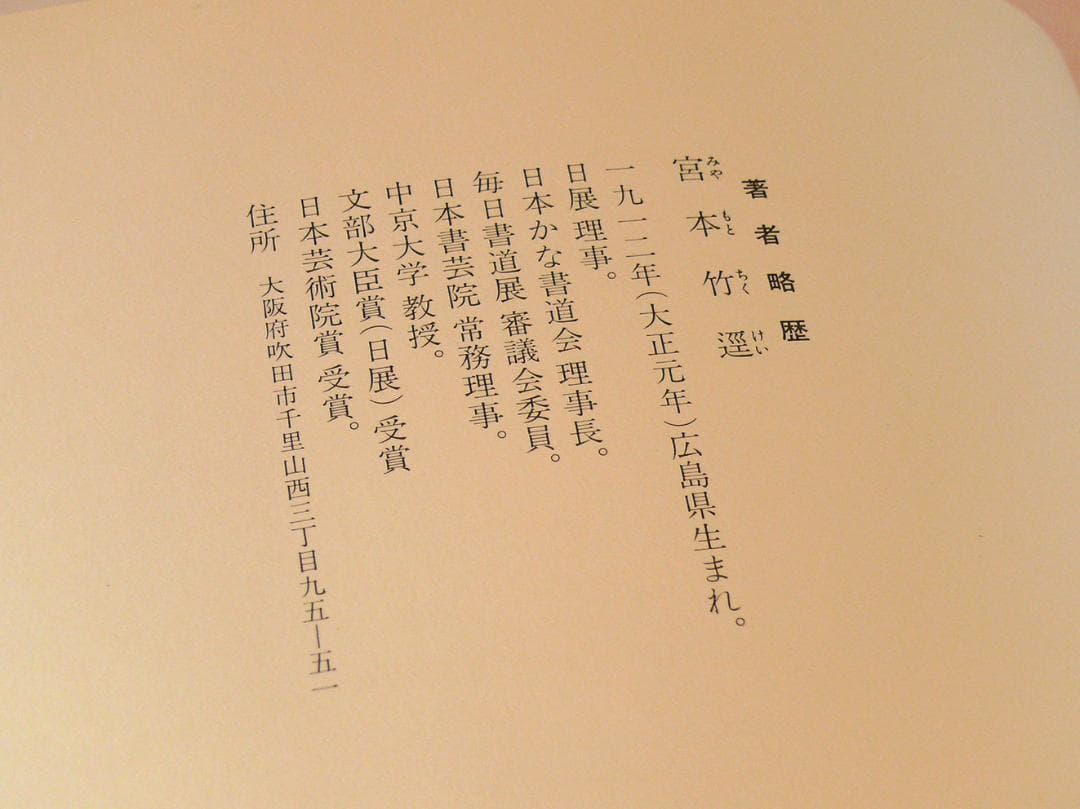 著者略歴
宮本竹逕
みやもとちくけい
一九一二年(大正元年)広島県生まれ。
日展理事。
日本かな書道会理事長。
毎日書道展審議会委員。
日本書芸院常務理事。
中京大学教授。
文部大臣賞(日展)受賞
日本芸術院賞受賞。
住所 大阪府吹田市千里山西三丁目九五―五一